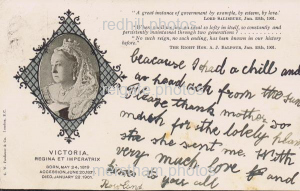 "A great instance of government by example, by esteem, by love."
LORD SALISBURY, Jan. 25th, 1901.
so lofty in itself, so constantly and
persistently transmitted through two generations"
"No such reign, no such ending, has been known in our history
before."
THE RIGHT HON. A. J. BALFOUR, Jan. 25th, 1901.
beacause I had a chill and
a headach from the sun
Please thank mother so
much for the lovely plant
she sent me. With
very much love &
kisses to you all
VICTORIA,
REGINA ET IMPERATRIX
BORN, MAY 24, 1819
ACCESSION, JUNE 20, 1837
DIED, JANUARY 22, 1901.
redhill photos